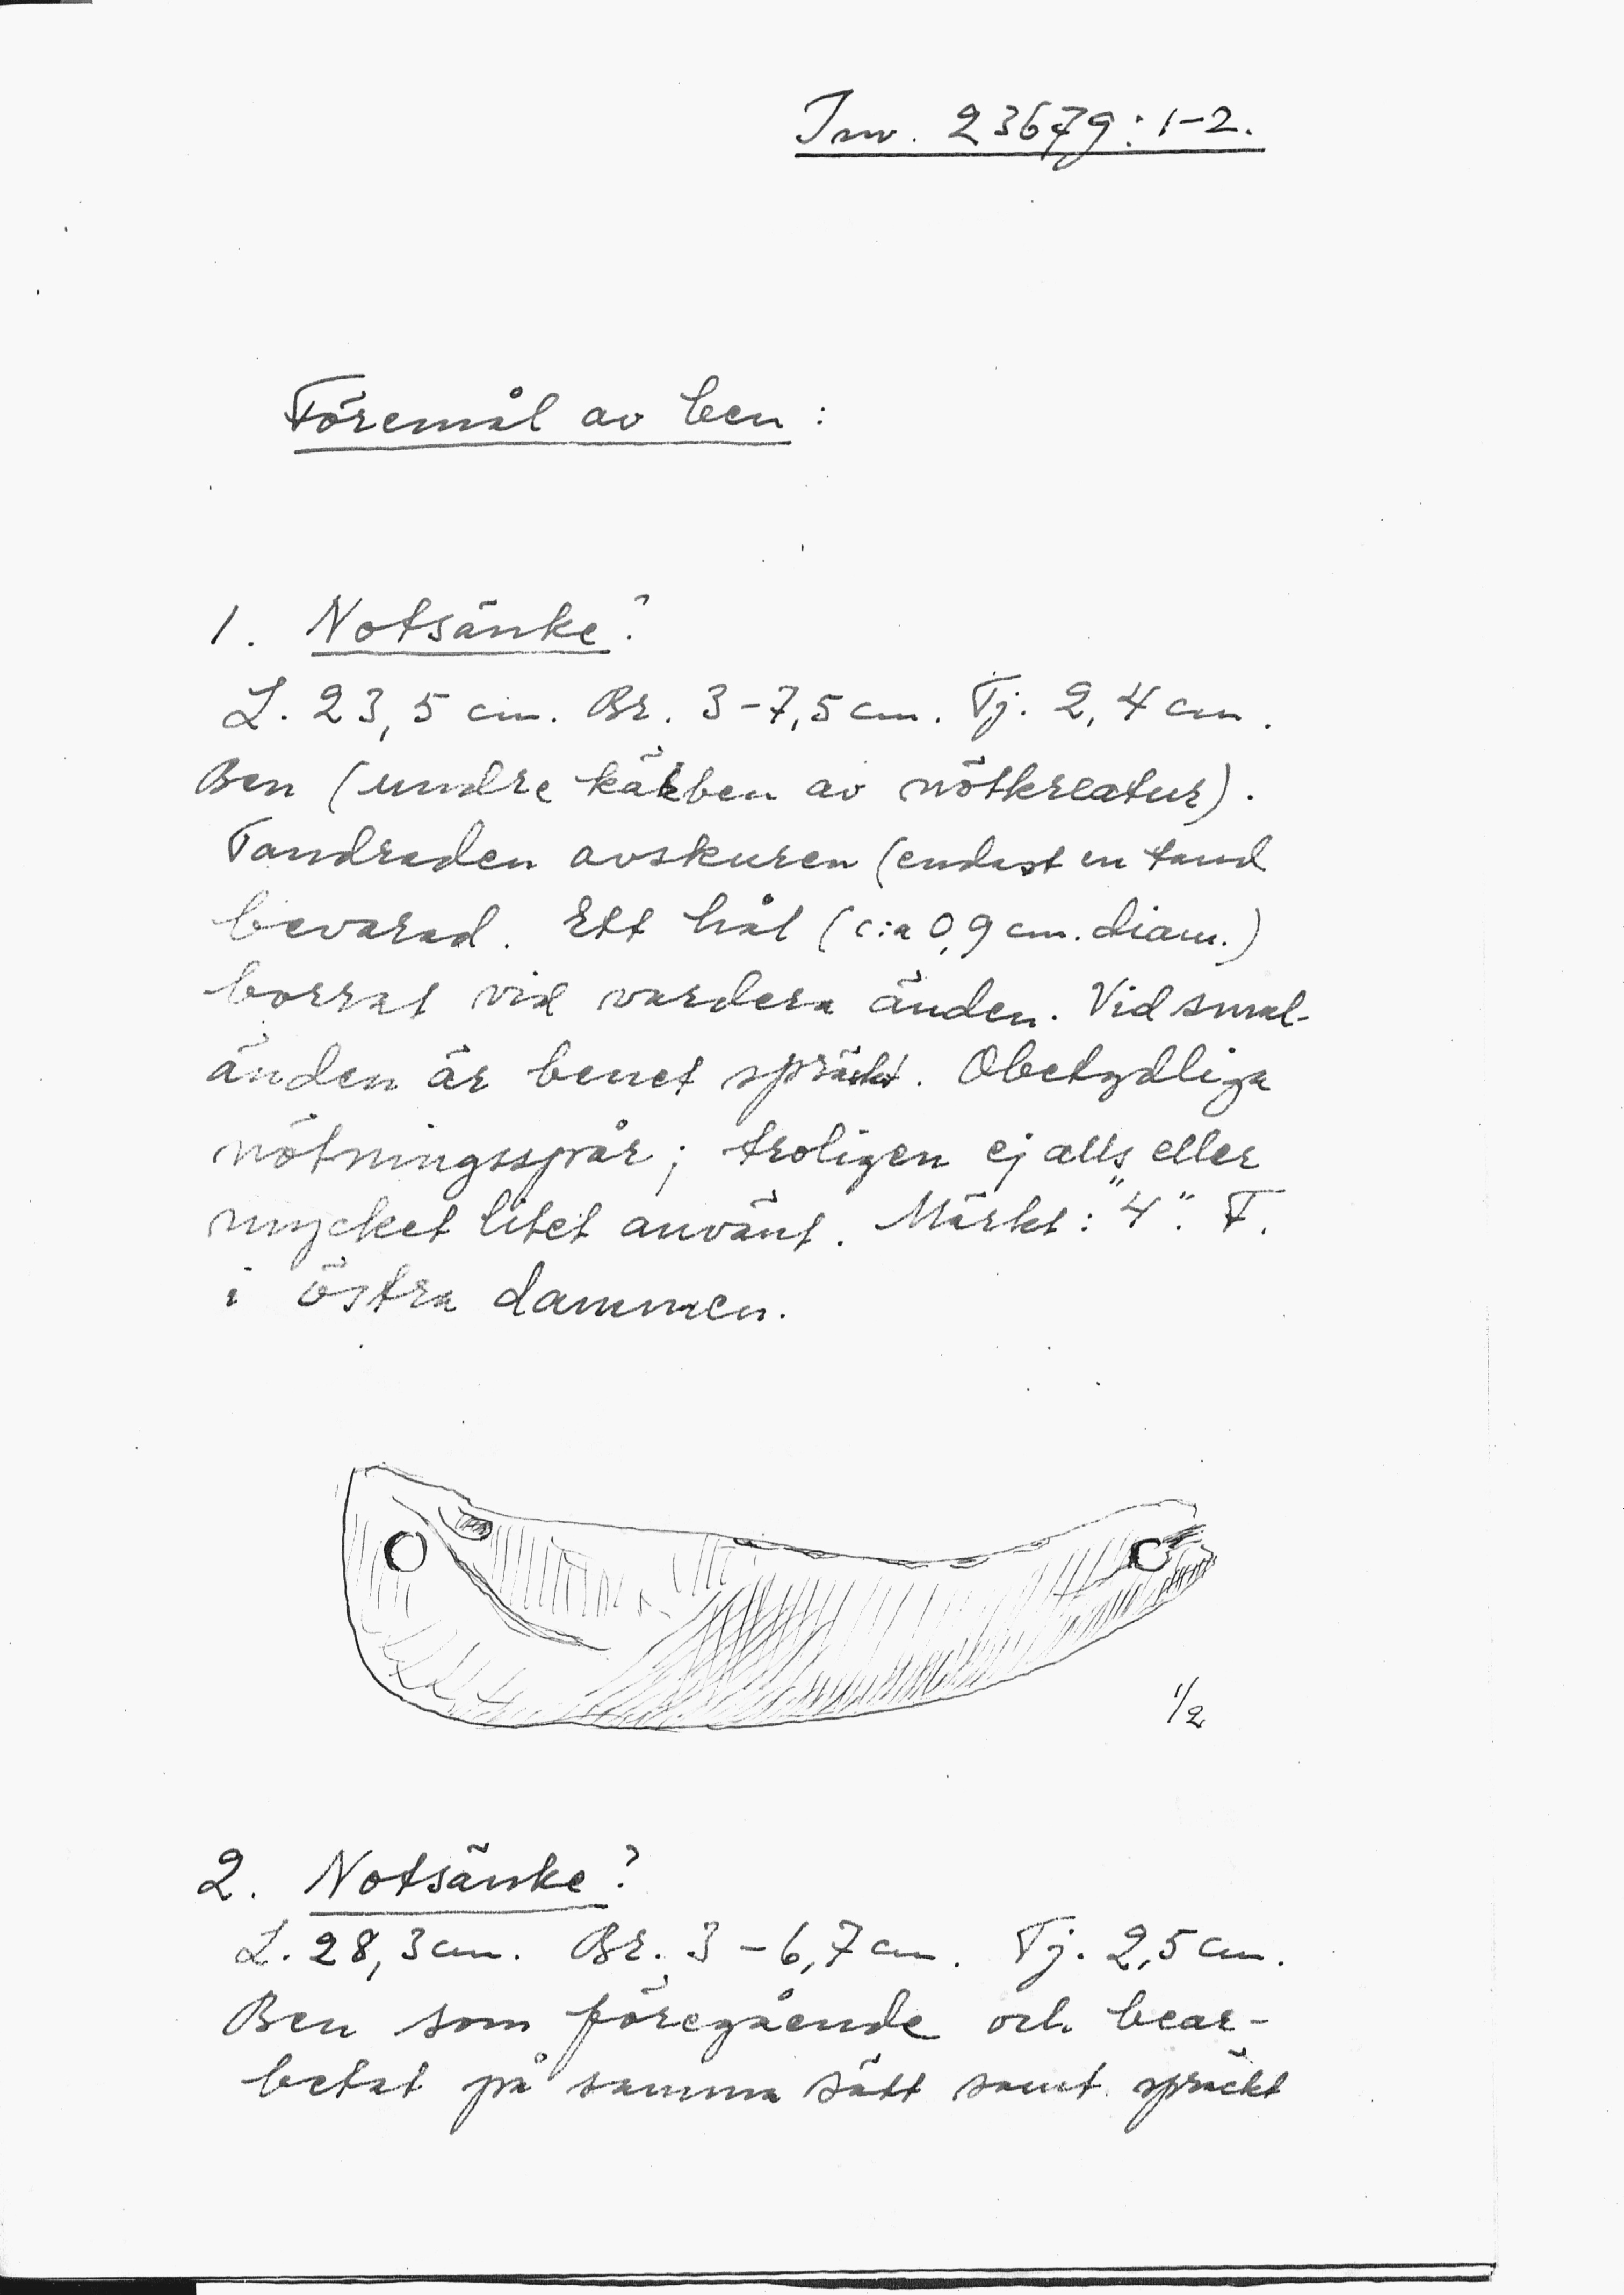 Inv. 23679:1-2.
Föremål av ben:
1. Notsänke?
L. 23,5 cm. Br. 3-7,5 cm. Tj. 2,4 cm.
Ben (undre käkben av nötkreatur).
Tandraden avskuren (endast en tand
bevarad. Ett hål (c:a 0,9 cm. diam.)
borrat vid vardera änden. Vid smal-
änden är benet spräckt. Obetydliga
nötningsspår; troligen ej alls eller
mycket litet använt. Märkt: "4". F.
i östra dammen.
1/2
2. Notsänke?
L. 28,3 cm. Br. 3-6,7 cm. Tj. 2,5 cm.
Ben som föregående och bear-
betat på samma sätt samt spräckt